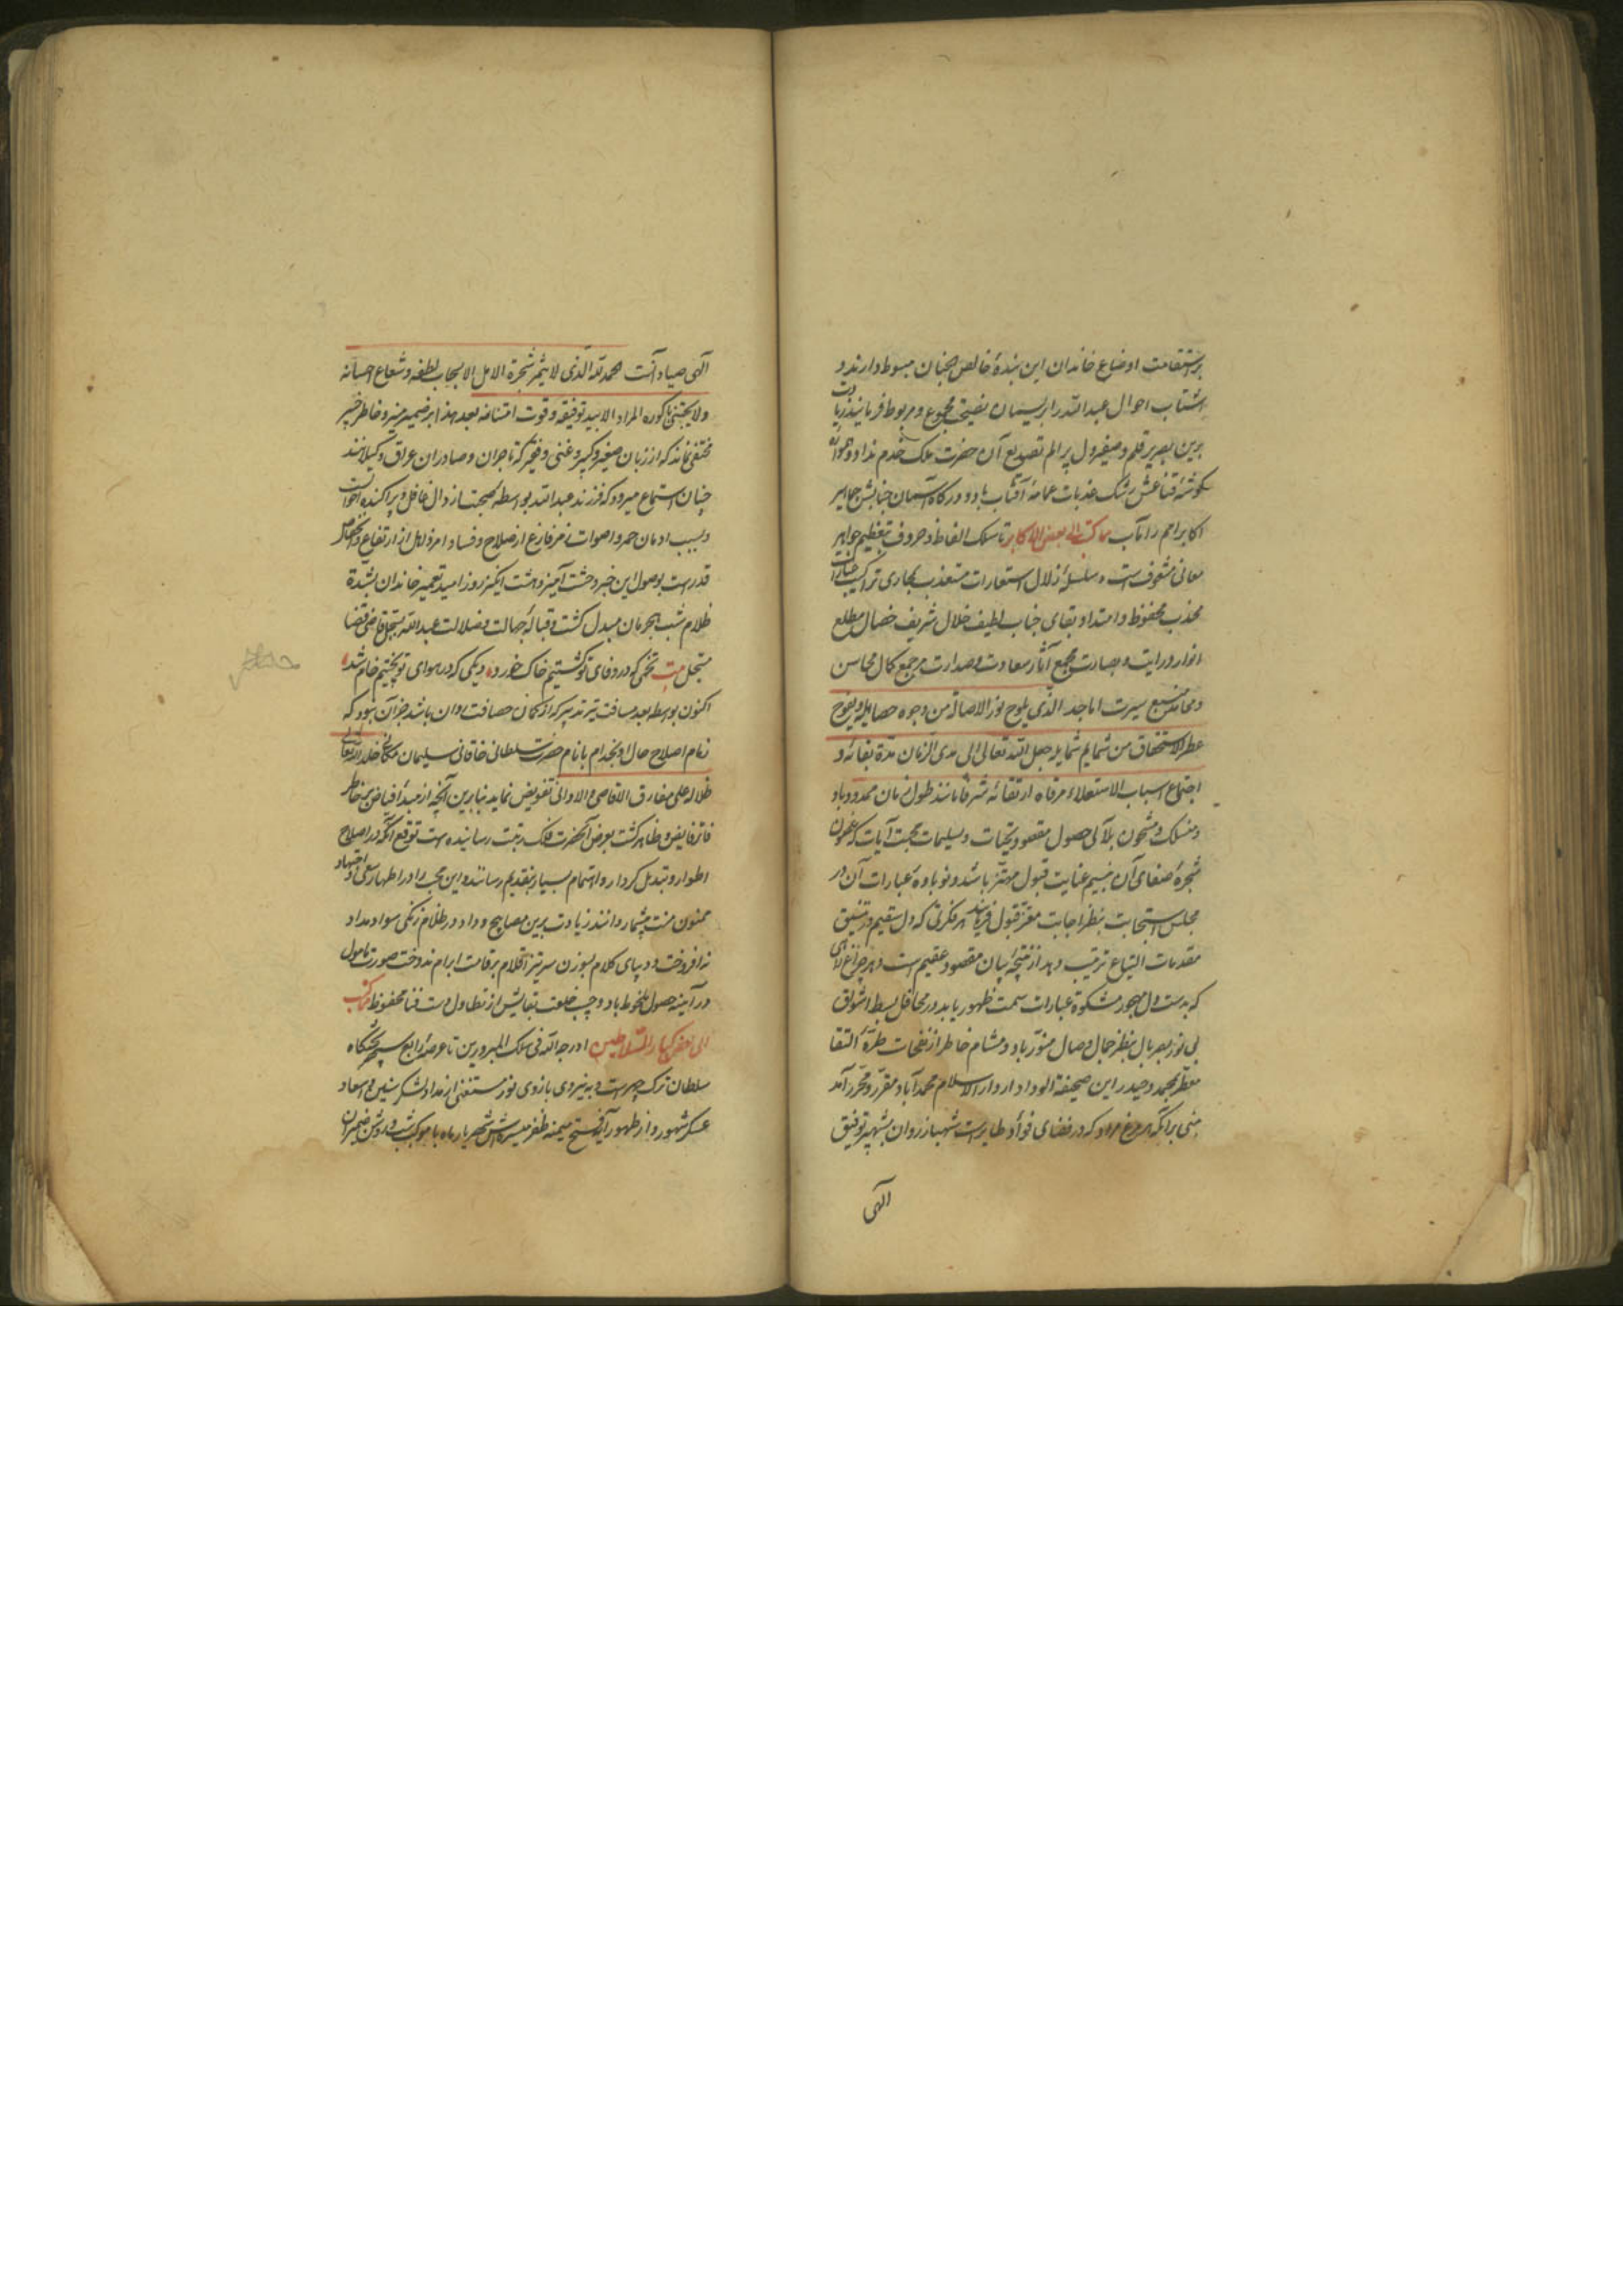 بر استقامت اوضاع خاندان این بندهٔ خالص الجنان مبسوط دارند و
اشتات احوال عبدالله را بریسمان نصیحت مجموع و مربوط فرمایند زیادت
برین بصریر قلم و صفیر دل پر الم تصدیع آن حضرت ملک خدم نداد و همواره
گوشهٔ قناعش رشک عذبات عمامهٔ آفتاب باد و درگاه آسمان جنابش جماهیر
اکابر امم را مآب مما کتب الی بعض الاکابر تا سلک الفاظ و حروف بتنظیم جواهر
معانی مشعوف است و سلسلهٔ زلال استعارات مستعذب بمجاری تراکیب عبارات
مهذب محفوظ و امتداد بقای جناب لطیف خلال شریف خصال مطلع
انوار درایت و بصارت مجمع آثار سعادت و صدارت مرجع کمال محاسن
و محامد منبع سیرت اماجد الذی یلوح نور الاصالة من وجوه خصایله و یفوح
عطر الاستحقاق من شمایم شمایله جعل الله تعالی الی مدی الزمان مدة بقائه و
اجتماع اسباب الاستعلاء مرقاة ارتقائه شرفا مانند طول زمان ممدود باد
و منسلک و مشحون بلآلی حصول مقصود تحیات و تسلیمات محبت آیات که غصون
شجرهٔ صفای آن بنسیم عنایت قبول مهتز باشد و نوباوهٔ عبارات آن در
مجلس استجابت بنظر اجابت معزز قبول فرمایند هر فکرتی که دل سقیم در تنسیق
مقدمات التیاع ترتیب دهد از نتیجهٔ بیان مقصود عقیم است و هر چراغ لآلی
که بدست دل مهجور مشکوة عبارات سمت ظهور یابد در محافل بسط اشواق
بی نور بصر بال بنظر جمال وصال منور باد و مشام خاطر از نفحات طرهٔ التقا
معطر بمحمد و حیدر این صحیفة الوداد از دار الاسلام محمدآباد مقرر و محرر آمد
مبنی برآنکه هر مرغ مراد که در فضای فواد طایر است شهباز روان بشهپر توفیق
الهی
الهی صیاد آنست حمد لله الذی لا یثمر شجرة الامل الا بسحاب لطفه و شعاع احسانه
ولا یجتنی باکوره المراد الا بید توفیقه و قوت امتنانه بعد هذا بر ضمیر منیر و خاطر خبیر
مختفی نماند که از زبان صغیر و کبیر و غنی و فقیر که تاجران و صادران عراق و گیلانند
چنان استماع میرود که فرزند عبدالله بواسطهٔ صحبت ارذال غافل و پراکنده احوالست
و بسبب ادمان خمر و اصوات زمر فارغ از صلاح و فساد امر و ذاهل از ارتفاع و انخفاض
قدرست بوصول این خبر وحشت آمیز دهشت انگیز روز امید تعمیر خاندان بشدة
ظلام شب هجر مان مبدل گشت و قبالهٔ جهالت و ضلالت عبدالله بسجل قاضی قضا
مسجل بیت تخمی که در وفای تو کشتیم خاک خورد دیگی که در هوای تو پختیم خام شد
اکنون بواسطه بعد مسافت تیر تدبیر که از کمان حصافت روان باشد جز آن نبود که
زمام اصلاح حال او بخدام بانام حضرت سلطانی خاقانی سلیمان مکانی خلد الله تعالی
ظلاله علی مفارق الاقاصی و الادانی تفویض نماید بنابرین آنچه از مبدأ فیاض بر خاطر
فاتر فایض و ظاهر گشت بعرض آنحضرت فلک رتبت رسانیده است توقع آنکه در اصلاح
اطوار و تبدیل کردار و اهتمام بسیار بتقدیم رسانند و این محب را در اظهار سعی و اجتهاد
ممنون منت بیشمار دانند زیادت برین مصابیح وداد در ظلام زنگی سواد مداد
نه افروخت و دیبای کلام بسوزن سرتیز اقلام بر قامت ابرام ندوخت صورت مامول
در آینه حصول ملحوظ باد و جیب خلعت بقایش از تطاول دست فنا محفوظ مما کتب
الی بعض کبار السلاطین ادرجه الله فی سلک المبرورین تا عرصهٔ رابع سپهر تختگاه
سلطان ترک چهر است و به نیروی بازوی نور مستغنی از مداد لشکر سنین و اسعاد
عسکر شهور و از ظهور آیه فتح میمنه ظفر میسره اش شهریار ماه با موکب شب و روشن ضمیران